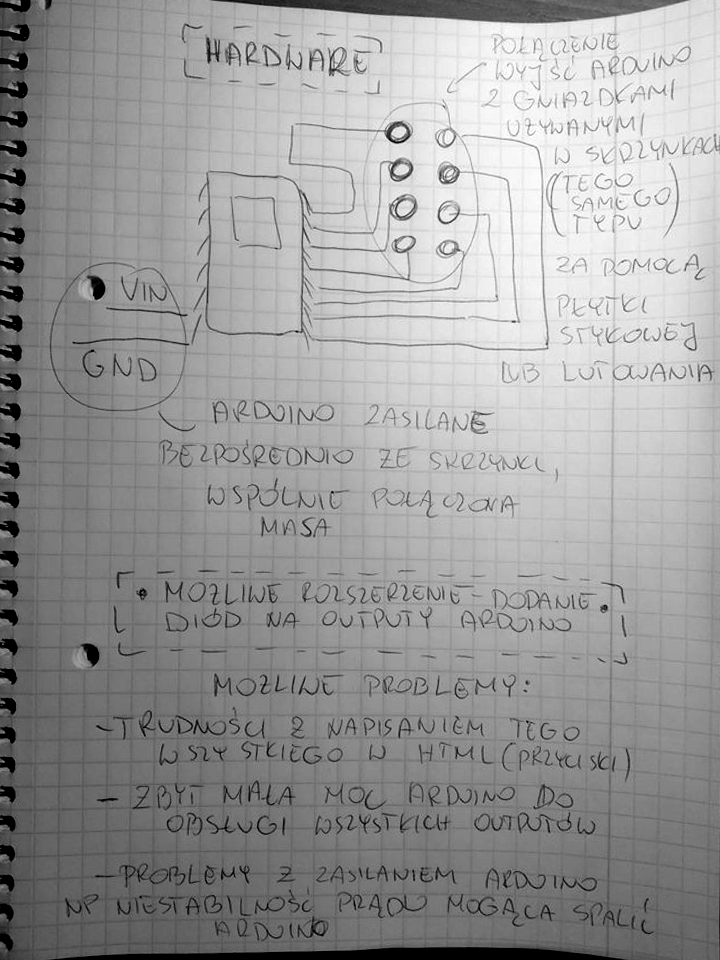 HARDWARE
POŁĄCZENIE
WYJŚĆ ARDUINO
Z GNIAZDKAMI
UŻYWANYMI
W SKRZYNKACH
(TEGO
SAMEGO
TYPU)
ZA POMOCĄ
PŁYTKI
STYKOWEJ
LUB LUTOWANIA
VIN
GND
ARDUINO ZASILANE
BEZPOŚREDNIO ZE SKRZYNKI,
WSPÓLNIE POŁĄCZONA
MASA
• MOŻLIWE ROZSZERZENIE - DODANIE
DIÓD NA OUTPUTY ARDUINO
MOŻLIWE PROBLEMY:
- TRUDNOŚCI Z NAPISANIEM TEGO
WSZYSTKIEGO W HTML (PRZYCISKI)
- ZBYT MAŁA MOC ARDUINO DO
OBSŁUGI WSZYSTKICH OUTPUTÓW
- PROBLEMY Z ZASILANIEM ARDUINO
NP NIESTABILNOŚĆ PRĄDU MOGĄCA SPALIĆ
ARDUINO